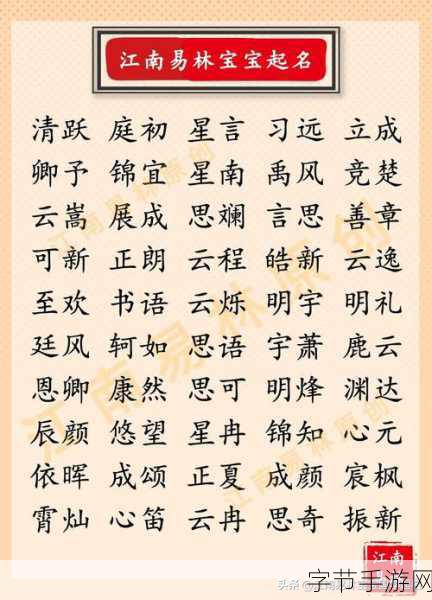 江南易林宝宝起名
清跃 庭初 星言 习远 立成
卿予 锦宜 星南 禹风 竞楚
云嵩 展成 思斓 言思 善章
可新 正朗 云程 皓新 云逸
至欢 书语 云烁 明宇 明礼
廷风 轲如 思语 宇萧 鹿云
恩卿 康然 思可 明烽 渊达
辰颜 悠望 星冉 锦知 心元
依晖 成颂 正夏 成颜 宸枫
霄灿 心笛 云冉 思奇 振新
江南易林原创
江南易林原创
江南易林原创
江南
头条
字节手游网